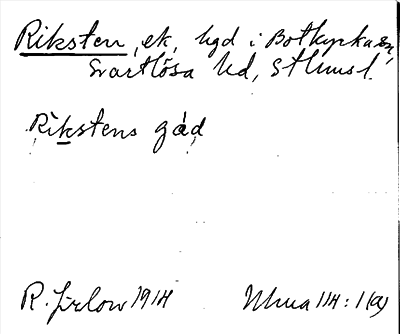 Riksten, ek, hgd i Botkyrka sn,
Svartlösa hd, Sthmsl.
Rikstens gåd
R. Jirlow 1914
114:1(a)